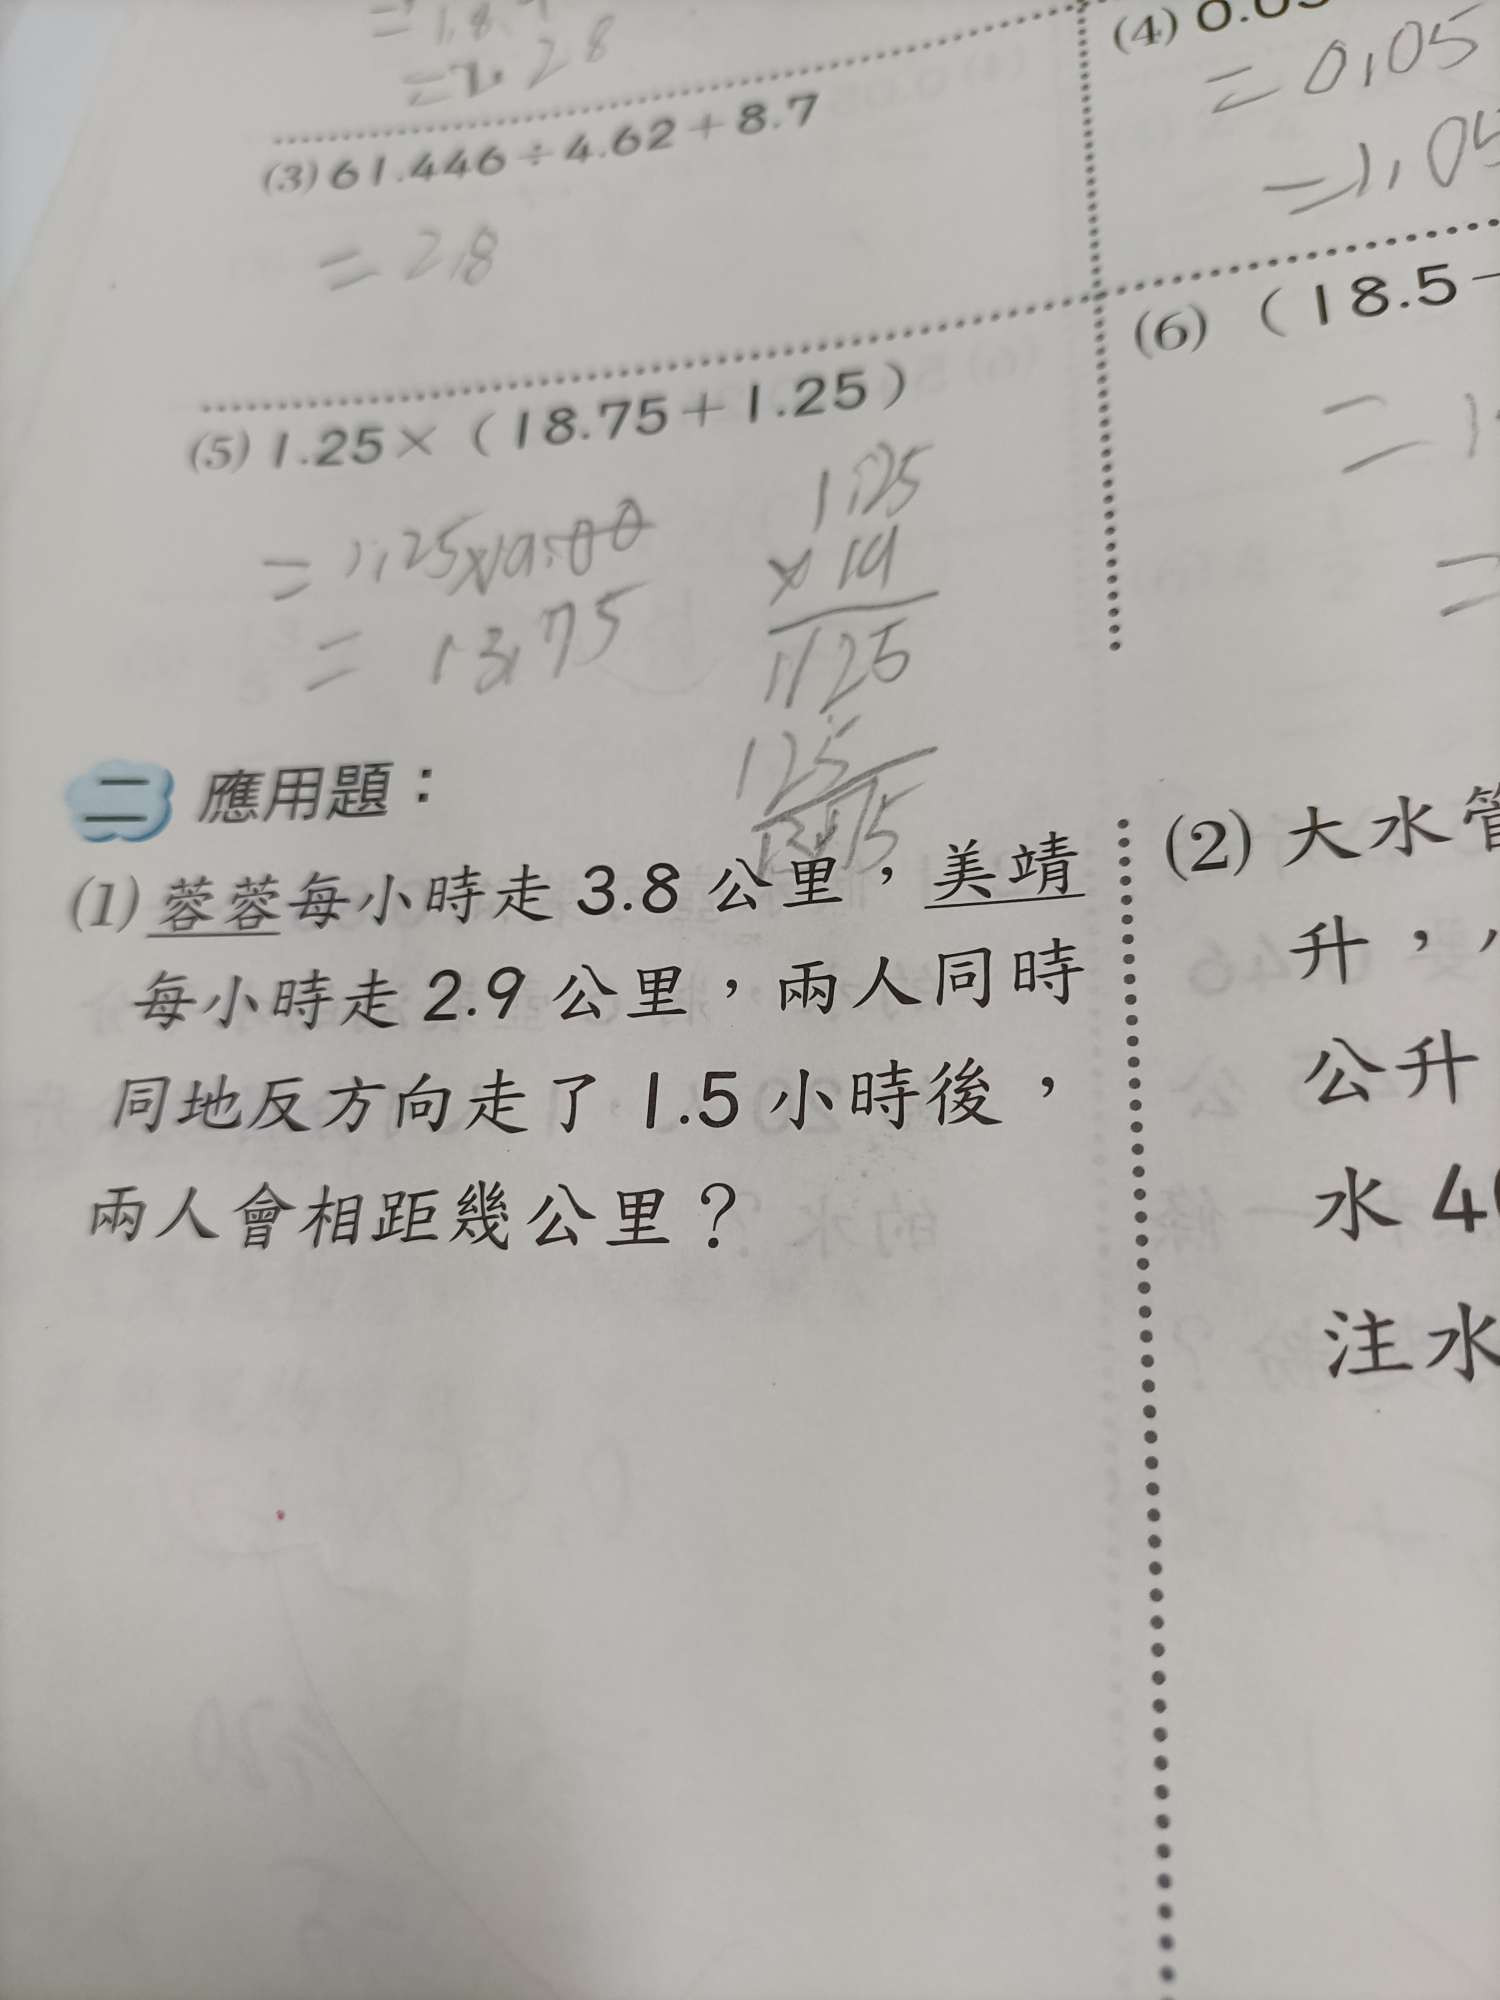 =2.28
(3) 61.446÷4.62+8.7
=2.8
(4) 0.05
=0.05
=1.05
(5) 1.25×（18.75+1.25）
=1.25×19.00
=13.75
1.25
× 19
1125
125
1375
(6)（18.5-
二 應用題：
(1) 蓉蓉每小時走 3.8 公里，美靖
每小時走 2.9 公里，兩人同時
同地反方向走了 1.5 小時後，
兩人會相距幾公里？
(2) 大水管
升，
公升
水 4
注水